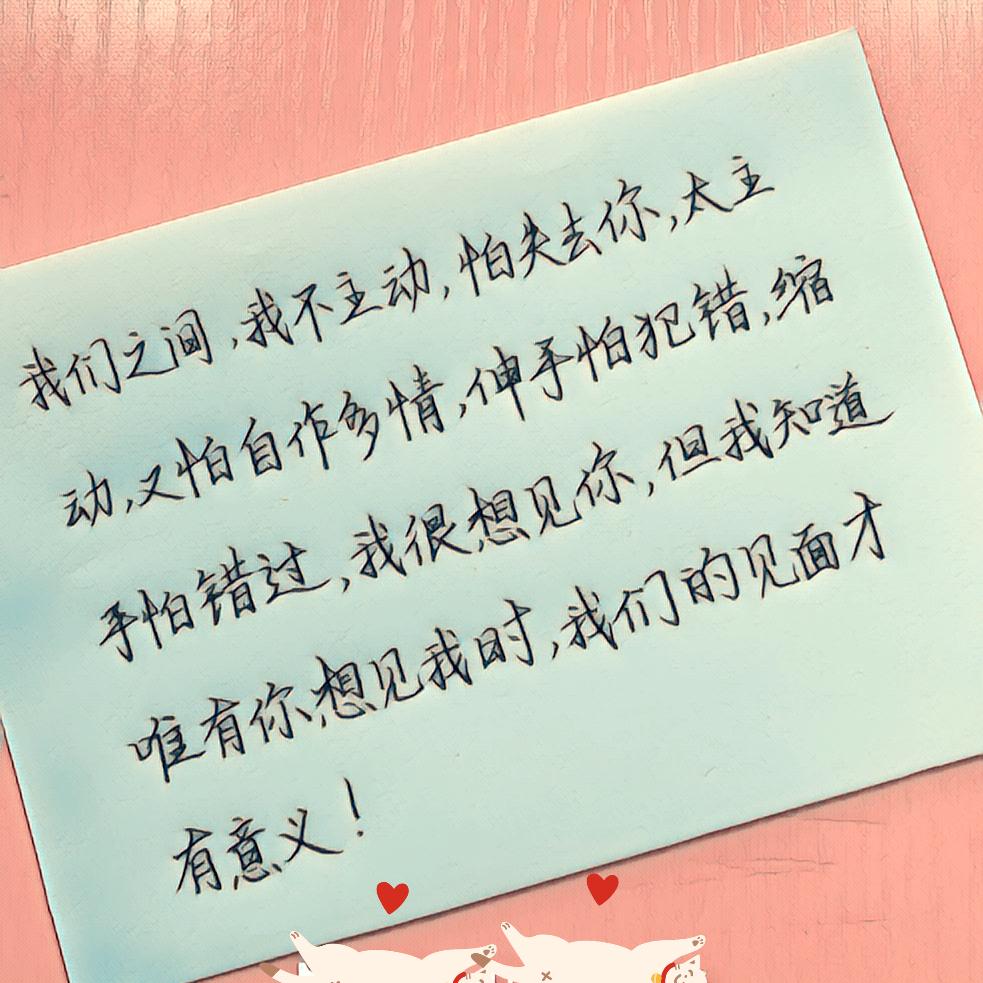 我们之间,我不主动,怕失去你,太主
动,又怕自作多情,伸手怕犯错,缩
手怕错过,我很想见你,但我知道
唯有你想见我时,我们的见面才
有意义!